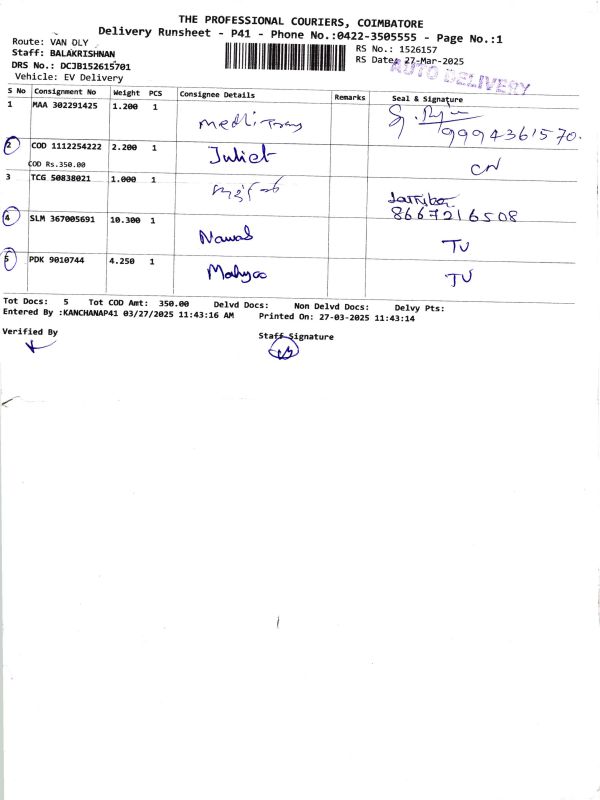 THE PROFESSIONAL COURIERS, COIMBATORE
Delivery Runsheet - P41 - Phone No.:0422-3505555 - Page No.:1
Route: VAN DLY
RS No.: 1526157
Staff: BALAKRISHNAN
RS Date: 27-Mar-2025
DRS No.: DCJB152615701
AUTO DELIVERY
Vehicle: EV Delivery
S No Consignment No Weight PCS Consignee Details Remarks Seal & Signature
1 MAA 302291425 1.200 1
9994361570.
2 COD 1112254222 2.200 1 Juliet CN
COD Rs.350.00
3 TCG 50838021 1.000 1
8667216508
4 SLM 367005691 10.300 1 Nawab TV
5 PDK 9010744 4.250 1 TV
Tot Docs: 5 Tot COD Amt: 350.00 Delvd Docs: Non Delvd Docs: Delvy Pts:
Entered By :KANCHANAP41 03/27/2025 11:43:16 AM Printed On: 27-03-2025 11:43:14
Verified By
Staff Signature